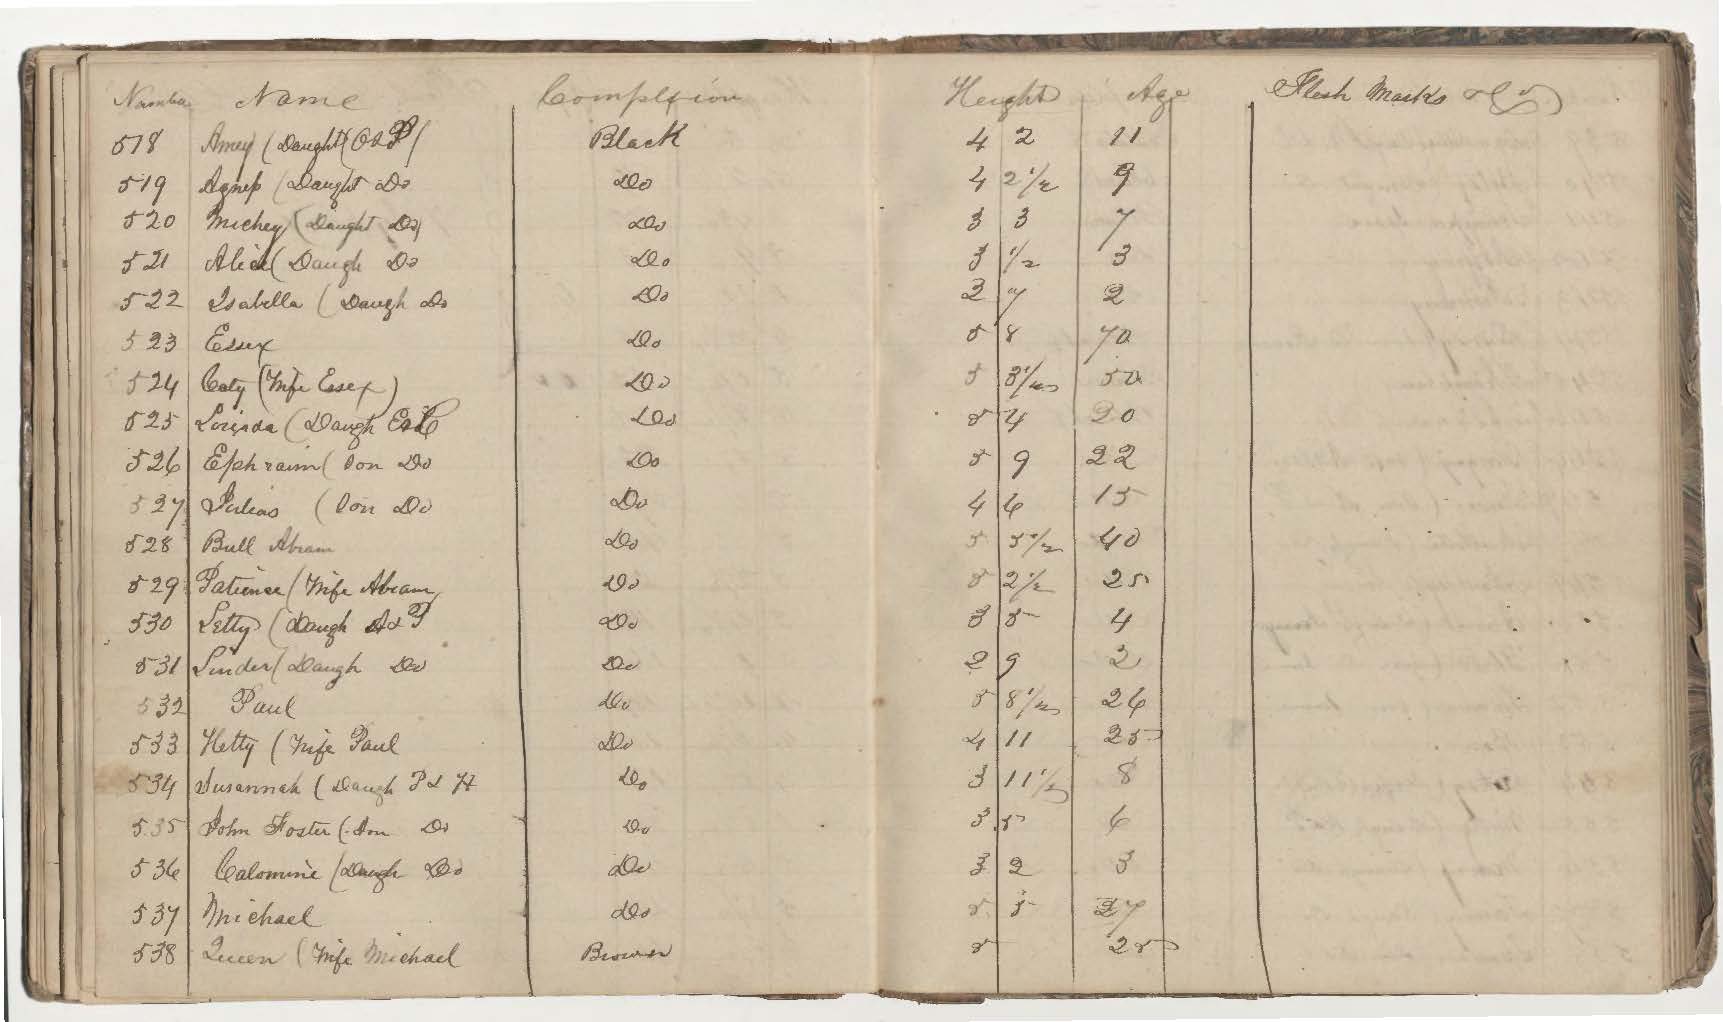 Number Name Complexion Height Age Flesh Marks &c
518 Amey (Daught ( Black 4 2 11
519 Agness (Daught Do Do 4 2 1/2 9
520 Michey (Daught Do) Do 3 3 7
521 Alice (Daugh Do Do 3 1/2 3
522 Isabella (Daugh Do Do 2 7 2
523 Essex Do 5 8 70
524 Caty (Wife Essex) Do 5 3 1/2 50
525 Lorinda (Daugh E & C Do 5 4 20
526 Ephraim (Son Do Do 5 9 22
527 Julias (Son Do Do 4 6 15
528 Bull Abram Do 5 5 1/2 40
529 Patience (Wife Abram Do 5 2 1/2 25
530 Letty (Daugh A & P Do 3 5 4
531 Linder (Daugh Do Do 2 9 2
532 Paul Do 5 8 1/2 26
533 Hetty (Wife Paul Do 4 11 25
534 Susannah (Daugh P & H Do 3 11 1/2 8
535 John Foster (Son Do Do 3 5 6
536 Calomine (Daugh Do Do 3 2 3
537 Michael Do 5 5 27
538 Queen (Wife Michael Brown 5 25